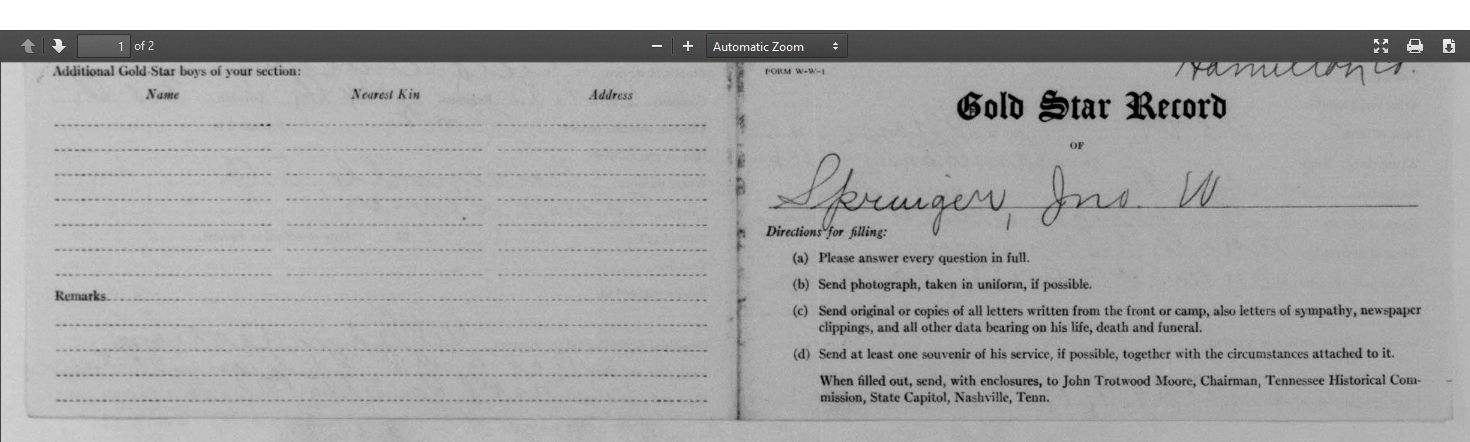 1 of 2
Automatic Zoom
Additional Gold-Star boys of your section:
Name Nearest Kin Address
Remarks
FORM W-W-1
Hamilton Co.
Gold Star Record
OF
Springer, Jno. W
Directions for filling:
(a) Please answer every question in full.
(b) Send photograph, taken in uniform, if possible.
(c) Send original or copies of all letters written from the front or camp, also letters of sympathy, newspaper
clippings, and all other data bearing on his life, death and funeral.
(d) Send at least one souvenir of his service, if possible, together with the circumstances attached to it.
When filled out, send, with enclosures, to John Trotwood Moore, Chairman, Tennessee Historical Com-
mission, State Capitol, Nashville, Tenn.